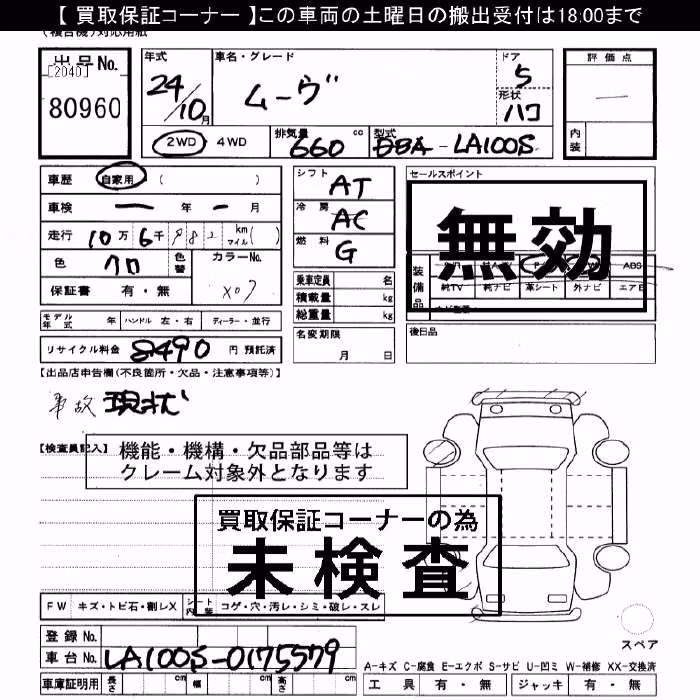 【 買取保証コーナー 】この車両の土曜日の搬出受付は18:00まで
(複合機)対応用紙
出品No.
[2040]
80960
年式
24/10月
車名・グレード
ムーヴ
ドア
5
形状
ハコ
評価点
内装
2WD ・ 4WD
排気量 660 cc
型式 DBA - LA100S
車歴 自家用 ( )
車検 ー 年 ー 月
走行 10万6千982 km マイル( )
色 クロ
色替
カラーNo.
X07
保証書 有・無
シフト AT
冷房 AC
燃料 G
乗車定員 名
積載量 kg
総重量 kg
セールスポイント
無効
装備品
ABS
純TV 純ナビ 革シート 外ナビ エアB
モデル年式 年 ハンドル 左・右 ディーラー・並行
名変期限
月 日
後日品
リサイクル料金 8490 円 預託済
【出品店申告欄(不良箇所・欠品・注意事項等)】
事故 現状
【検査員記入】
機能・機構・欠品部品等は
クレーム対象外となります
買取保証コーナーの為
未検査
FW キズ・トビ石・割レX シート内装 コゲ・穴・汚レ・シミ・破レ・スレ
登録No.
車台No. LA100S-0175579
スペア
A-キズ C-腐食 E-エクボ S-サビ U-凹ミ W-補修 XX-交換済
車庫証明用 長さ cm 幅 cm 高さ cm
工具 有・無 ジャッキ 有・無